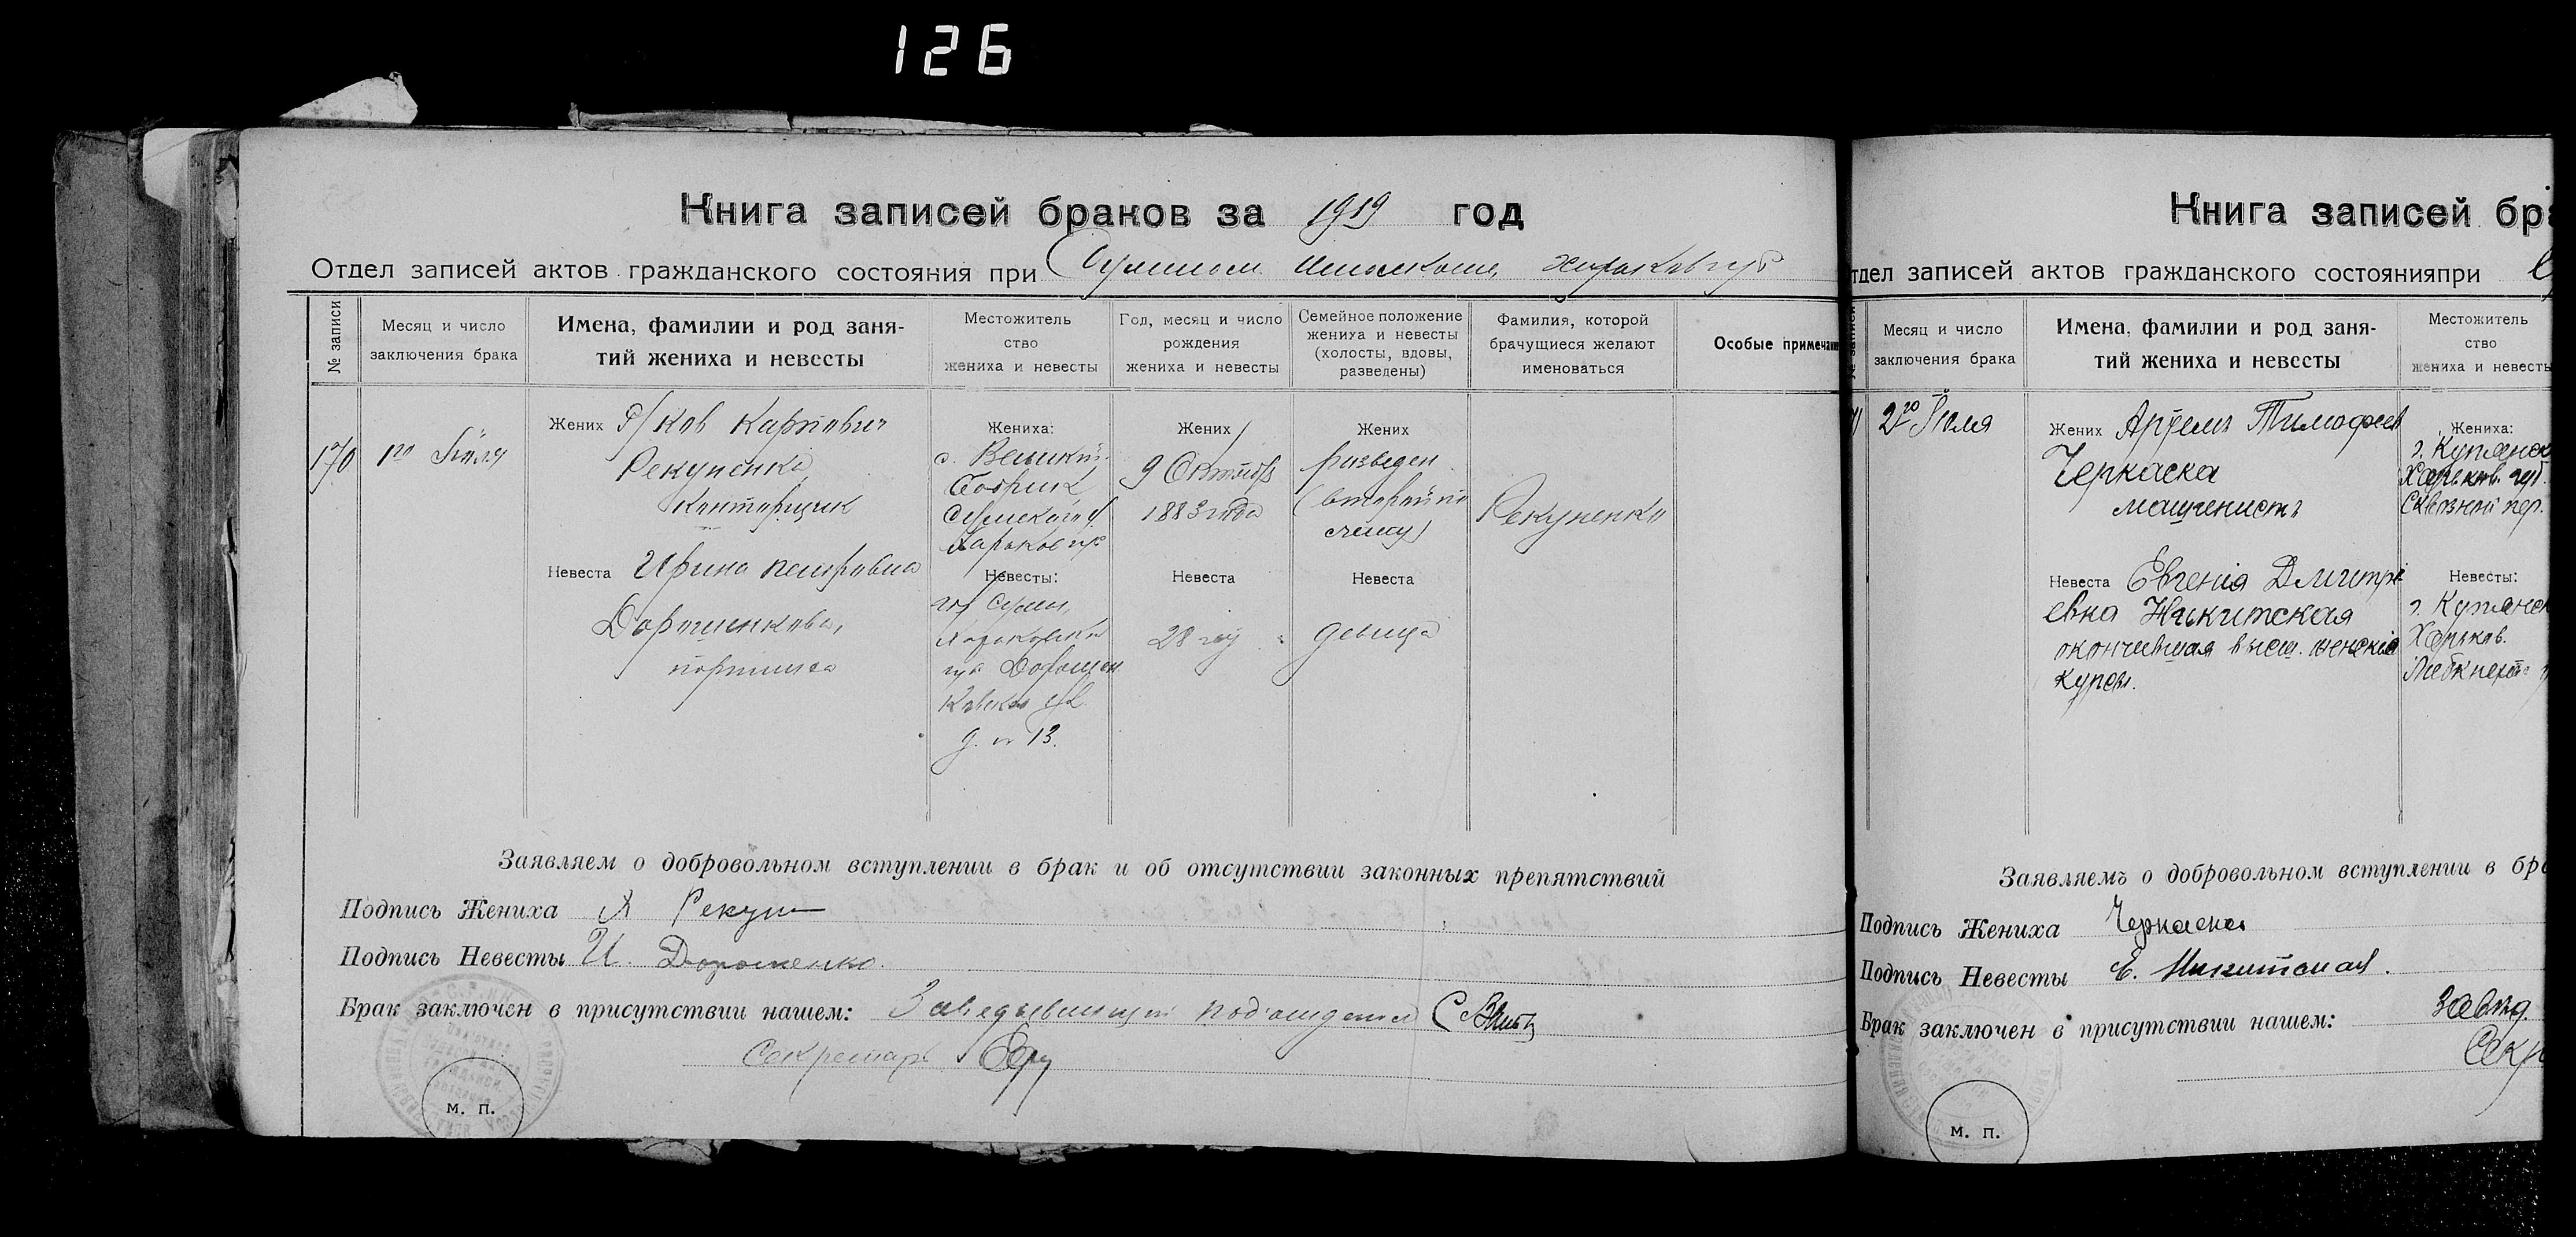 126
Книга записей браков за 1919 год
Отдел записей актов гражданского состояния при Сумском Исполкоме Харьков губ
№ записи
Месяц и число
заключения брака
Имена, фамилии и род заня-
тий жениха и невесты
Местожитель
ство
жениха и невесты
Год, месяц и число
рождения
жениха и невесты
Семейное положение
жениха и невесты
(холосты, вдовы,
разведены)
Фамилия, которой
брачущиеся желают
именоваться
Особые примечани
170
1го Июля
Жених Яков Карпович
Рекуненко
Конторщик
Невеста Ирина Петровна
Дорошенкова,
портниха
Жениха:
с. Великий
Бобрик
Сумского у.
Харьков губ
Невесты:
гор Сумы,
Харьковской
губ Дорошен
ковская ул.
д. № 13.
Жених
9 Октября
1883 года
Невеста
28 лет
Жених
разведен
(вторый по
счету)
Невеста
девица
Рекуненко
Заявляем о добровольном вступлении в брак и об отсутствии законных препятствий
Подпись Жениха Я Рекун
Подпись Невесты И. Дорошенко.
Брак заключен в присутствии нашем: Заведывающий под'отделом
Секретарь
м. п.
Книга записей бра
тдел записей актов гражданского состоянияпри
Месяц и число
заключения брака
Имена, фамилии и род заня-
тий жениха и невесты
Местожитель
ство
жениха и невесты
2го Июля
Жених Артемъ Тимофеев
Черкаска
машинистъ
Невеста Евгенія Дмитрі
евна Никитская
окончившая высш. женскія
курсы.
Жениха:
г. Купянск
Харьков. губ.
Сквозной пер.
Невесты:
г. Купянск
Харьков.
Заявляемъ о добровольном вступлении в бра
Подпись Жениха Черкаска
Подпись Невесты Е. Никитская.
Брак заключен в присутствии нашем: Завед.
Секр
м. п.